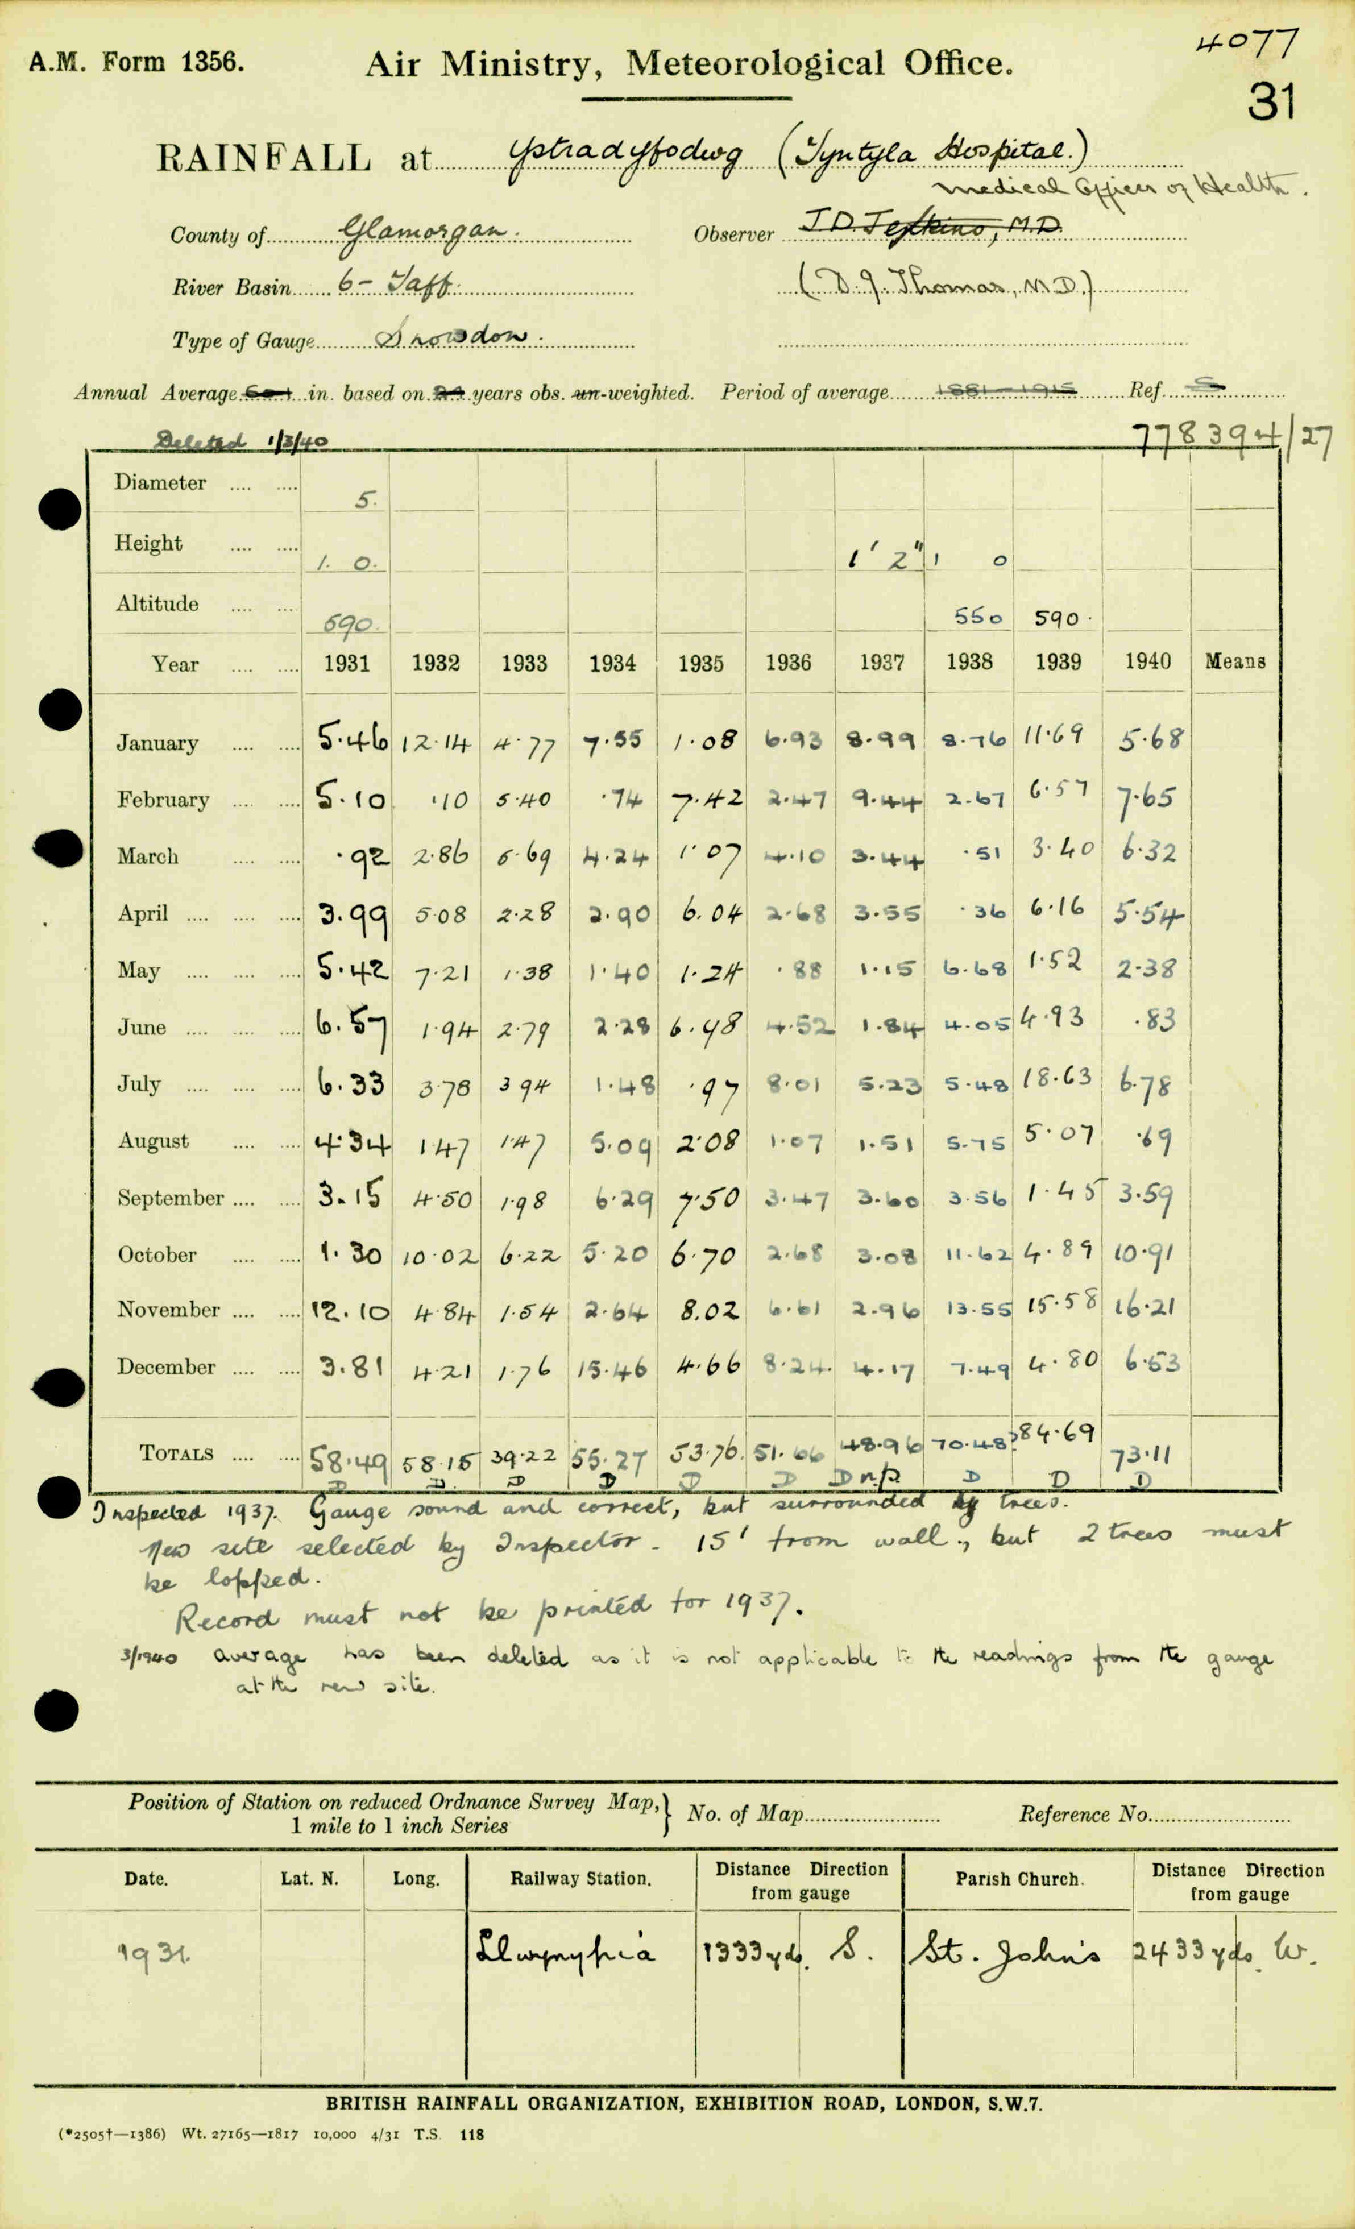 4077
A.M. Form 1356. Air Ministry, Meteorological Office.
31
RAINFALL at Ystradyfodwg (Tyntyla Hospital.)
Medical Officer of Health.
County of Glamorgan. Observer J D Jenkins, M.D.
River Basin 6 - Taff. (D. J. Thomas, M.D.)
Type of Gauge Snowdon.
Annual Average in. based on years obs. un-weighted. Period of average 1881-1915 Ref. S
Deleted 1/3/40 778394/27
Diameter .... .... 5.
Height .... .... 1. 0. 1' 2" 1 0
Altitude .... .... 590. 550 590.
Year .... .... 1931 1932 1933 1934 1935 1936 1937 1938 1939 1940 Means
January .... .... 5.46 12.14 4.77 7.55 1.08 6.93 8.99 8.76 11.69 5.68
February .... .... 5.10 .10 5.40 .74 7.42 2.47 9.44 2.67 6.57 7.65
March .... .... .92 2.86 5.69 4.24 1.07 4.10 3.44 .51 3.40 6.32
April .... .... .... 3.99 5.08 2.28 2.90 6.04 2.68 3.55 .36 6.16 5.54
May .... .... .... 5.42 7.21 1.38 1.40 1.24 .88 1.15 6.68 1.52 2.38
June .... .... .... 6.57 1.94 2.79 2.28 6.98 4.52 1.84 4.05 4.93 .83
July .... .... .... 6.33 3.78 3.94 1.48 .97 8.01 5.23 5.48 18.63 6.78
August .... .... 4.34 1.47 1.47 5.09 2.08 1.07 1.51 5.75 5.07 .69
September .... .... 3.15 4.50 1.98 6.29 7.50 3.47 3.60 3.56 1.45 3.59
October .... .... 1.30 10.02 6.22 5.20 6.70 2.68 3.08 11.62 4.89 10.91
November .... .... 12.10 4.84 1.54 2.64 8.02 6.61 2.96 13.55 15.58 16.21
December .... .... 3.81 4.21 1.76 15.46 4.66 8.24 4.17 7.49 4.80 6.53
TOTALS .... .... 58.49 58.15 39.22 55.27 53.76 51.66 48.96 70.48? 84.69 73.11
D D D D D D D n.p. D D D
Inspected 1937. Gauge sound and correct, but surrounded by trees.
New site selected by Inspector. 15' from wall, but 2 trees must
be lopped.
Record must not be printed for 1937.
3/1940 average has been deleted as it is not applicable to the readings from the gauge
at the new site.
Position of Station on reduced Ordnance Survey Map,} No. of Map Reference No.
1 mile to 1 inch Series
Date. Lat. N. Long. Railway Station. Distance Direction from gauge Parish Church. Distance Direction from gauge
1931. Llwynypia 1333 yds. S. St. John's 2433 yds. W.
BRITISH RAINFALL ORGANIZATION, EXHIBITION ROAD, LONDON, S.W.7.
(*2505†—1386) Wt. 27165—1817 10,000 4/31 T.S. 118